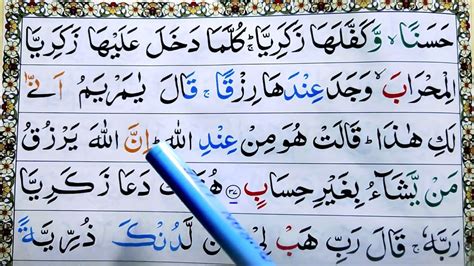 حَسَنًا ۙ وَّكَفَّلَهَا زَكَرِيَّا ؕ كُلَّمَا دَخَلَ عَلَيْهَا زَكَرِيَّا
الْمِحْرَابَ ۙ وَجَدَ عِنْدَهَا رِزْقًا ۚ قَالَ يٰمَرْيَمُ اَنّٰى
لَكِ هٰذَا ؕ قَالَتْ هُوَ مِنْ عِنْدِ اللّٰهِ ؕ اِنَّ اللّٰهَ يَرْزُقُ
مَنْ يَّشَآءُ بِغَيْرِ حِسَابٍ ﴿۳۷﴾ دَعَا زَكَرِيَّا
رَبَّهٗ ۚ قَالَ رَبِّ هَبْ لِيْ مِنْ لَّدُنْكَ ذُرِّيَّةً